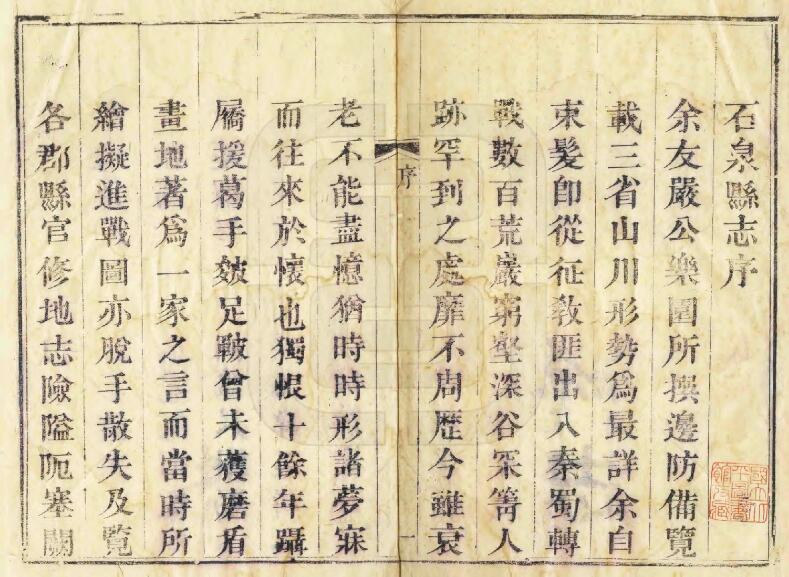 石泉縣志序
余友嚴公樂園所撰邊防備覽
載三省山川形勢爲最詳余自
束髮即從征敎匪出入秦蜀轉
戰數百荒巖窮壑深谷罙箐人
跡罕到之處靡不周歷今雖衰
序
一
老不能盡憶猶時時形諸夢寐
而往來於懷也獨悵十餘年躡
屩援葛手皴足皸曾未獲磨盾
畫地著爲一家之言而當時所
繪擬進戰圖亦脫手散失及覽
各郡縣官修地志險隘阨塞關